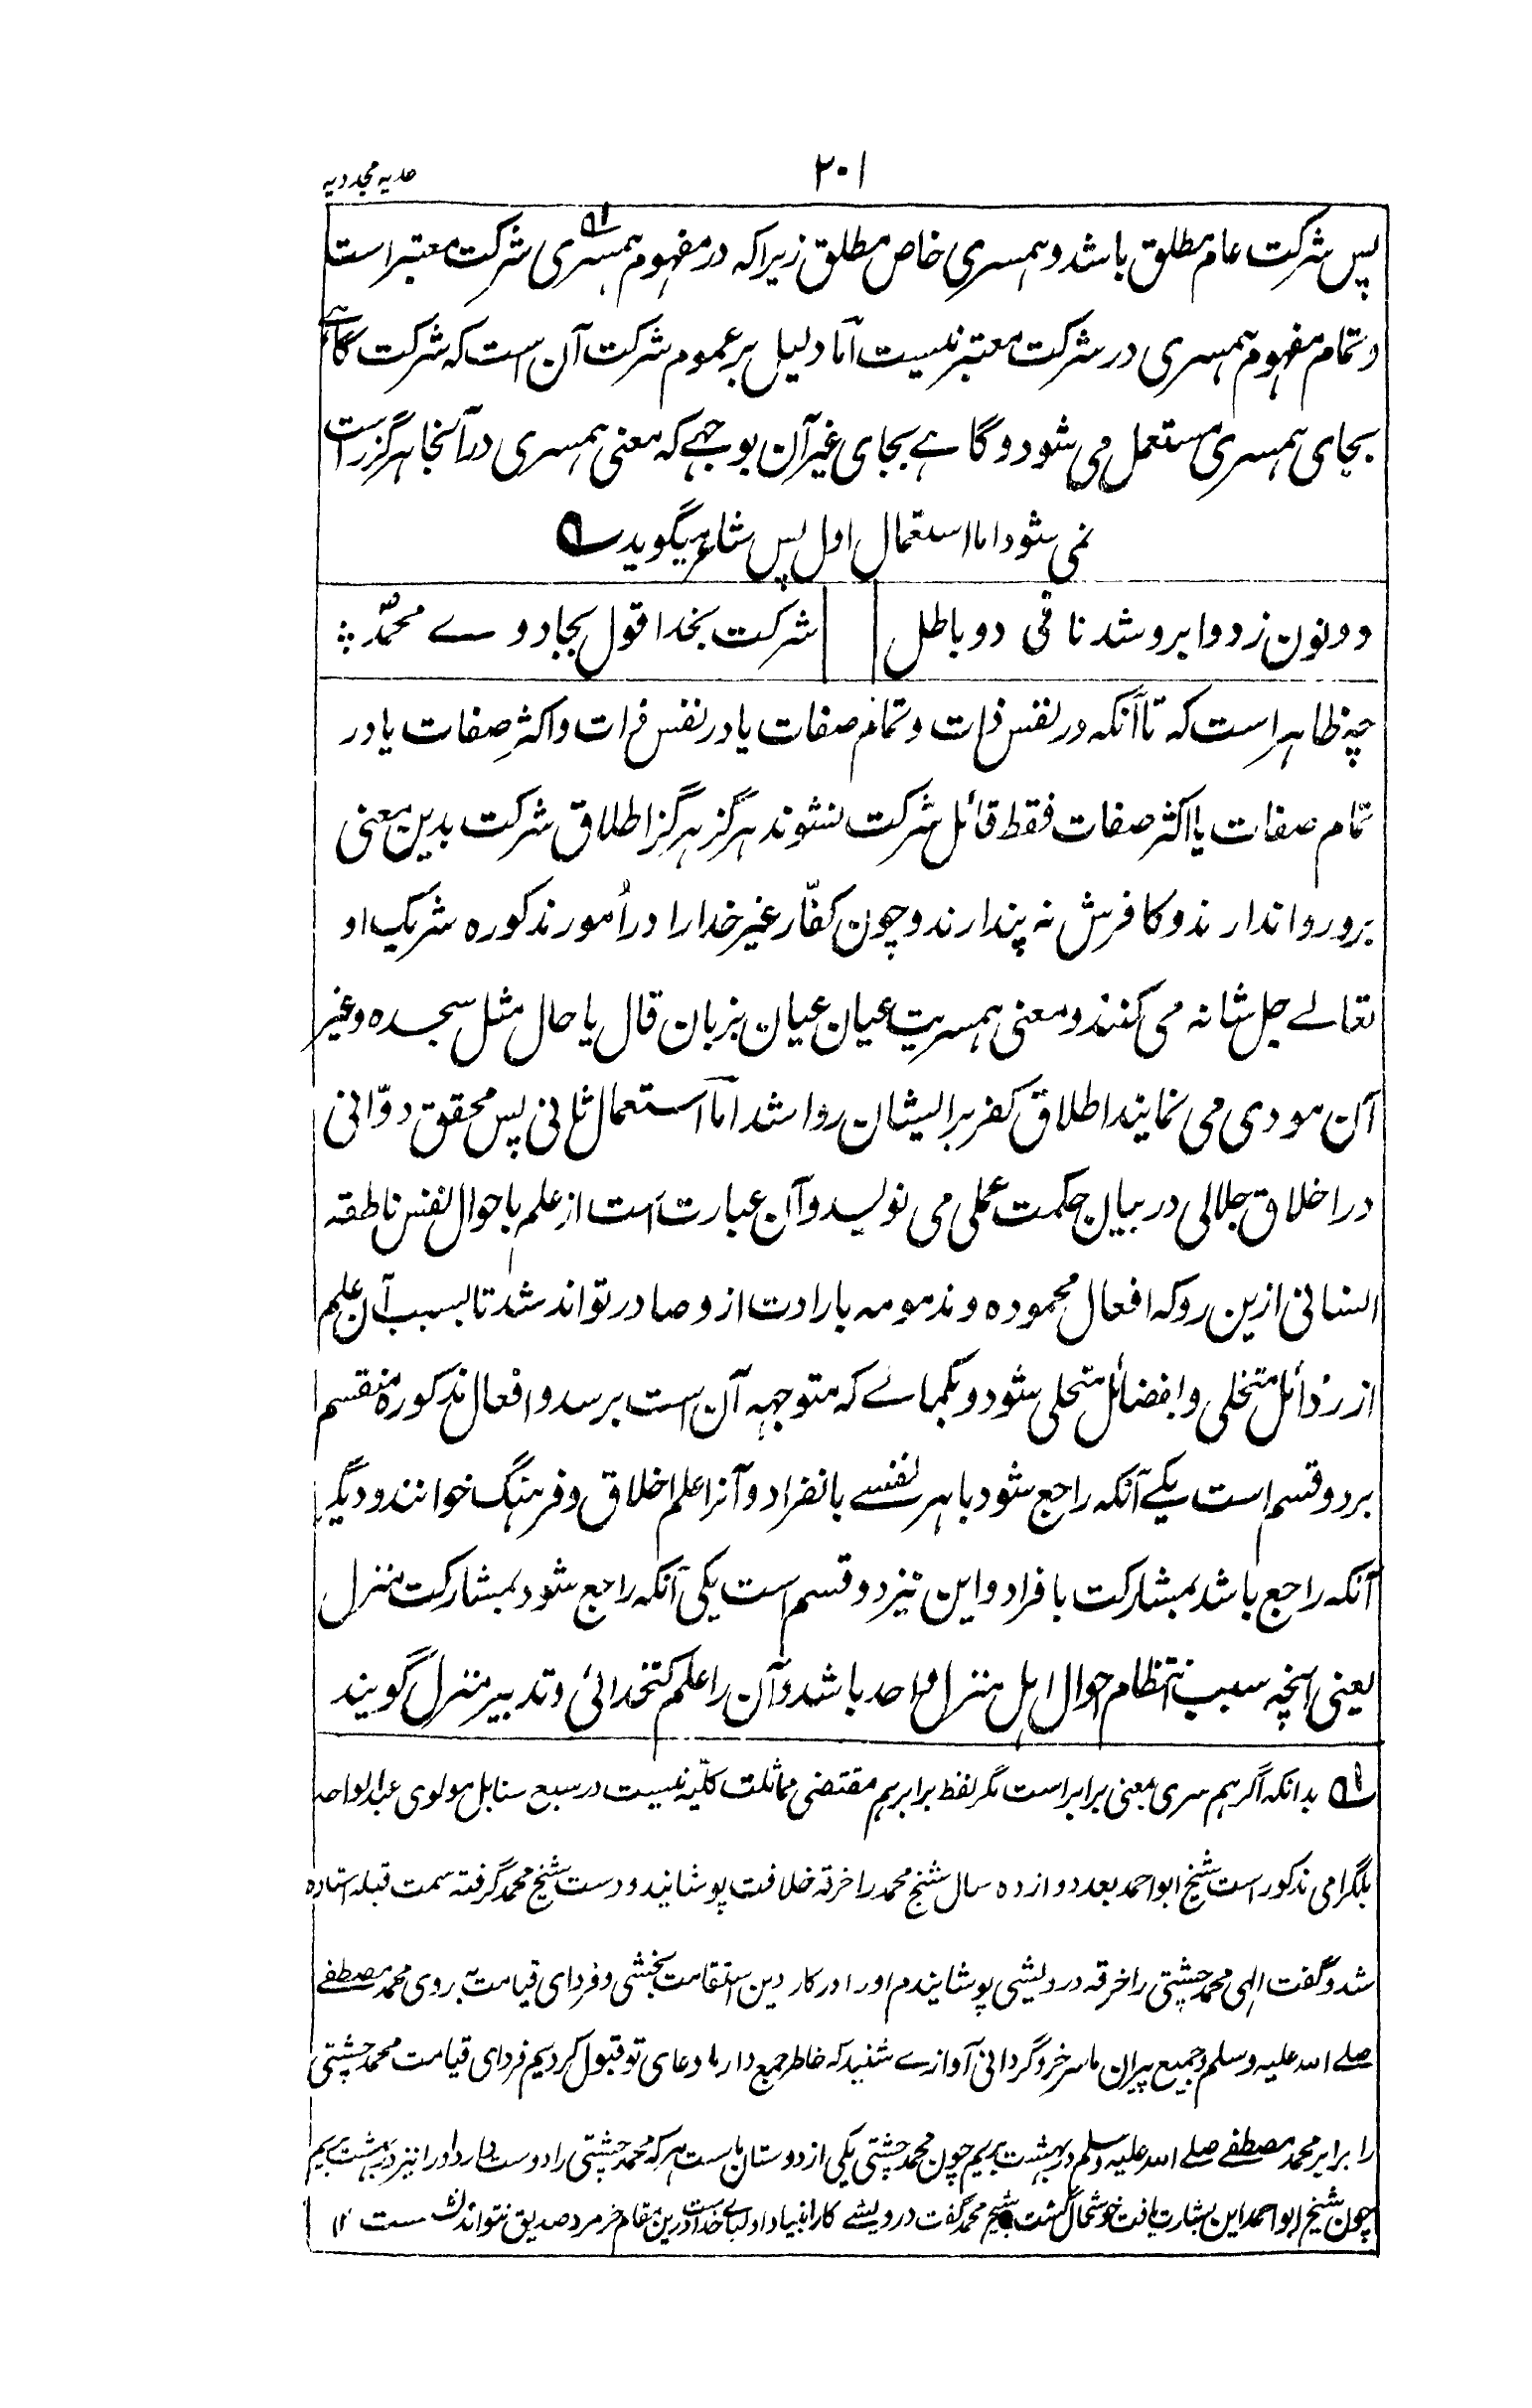 ۲۰۱
هدیه مجددیه
پس شرکت عام مطلق باشد و همسری خاص مطلق زیرا که در مفهوم همسری شرکت معتبر است
و تمام مفهوم همسری در شرکت معتبر نیست اما دلیل بر عموم شرکت آن است که شرکت گاهے
بجای همسری مستعمل می شود و گاهے بجای غیر آن بوجهے که معنی همسری در آنجا هرگز راست
نمی شود اما استعمال اول پس شاعر میگوید
دو نون زد و ابرو شد نافی دو باطل شرکت بخدا قول بجادوے محمدؐ
چه ظاهر است که تا آنکه در نفس ذات و تمام صفات یا در نفس ذات و اکثر صفات یا در
تمام صفات یا اکثر صفات فقط قائل شرکت نشوند هرگز هرگز اطلاق شرکت بدین معنی
برو روا ندارند و کافرش نه پندارند و چون کفّار غیر خدا را در اُمور مذکوره شریک او
تعالے جل شانه می کنند و معنی همسریت عیان عیان بزبان قال یا حال مثل سجده و غیر
آن مودی می نمایند اطلاق کفر بر ایشان روا شد اما استعمال ثانی پس محقق دوّانی
در اخلاق جلالی در بیان حکمت عملی می نویسد و آن عبارت است از علم باحوال نفس ناطقه
انسانی ازین رو که افعال محموده و مذمومه بارادت از و صادر تواند شد تا بسبب آن علم
از رذائل متخلی و بفضائل متحلی شود و بکمالے که متوجه آن است برسد و افعال مذکوره منقسم
بر دو قسم است یکے آنکه راجع شود با هر نفسے بانفراد و آنرا علم اخلاق و فرهنگ خوانند و دیگر
آنکه راجع باشد بمشارکت بافراد و این نیز دو قسم است یکی آنکه راجع شود بمشارکت منزل
یعنی آنچه سبب انتظام احوال اهل منزل واحد باشد و آن را علم کتخدائی و تدبیر منزل گویند
بدانکه اگر هم سری بمعنی برابر است مگر لفظ برابر هم مقتضی مماثلت کلّیه نیست در سبع سنابل مولوی عبدالواحد
بلگرامی مذکور است شیخ ابو احمد بعد دوازده سال شیخ محمد را خرقه خلافت پوشانید و دست شیخ محمد گرفته سمت قبله استاده
شد و گفت الهی محمد چشتی را خرقه درویشی پوشانیدم او را در کار دین استقامت بخشی و فردای قیامت به روی محمد مصطفے
صلے الله علیه وسلم و جمیع پیران ما سرخرو گردانی آوازے شنید که خاطر جمع دار ما دعای تو قبول کردیم فردای قیامت محمد چشتی
را برابر محمد مصطفے صلے الله علیه وسلم در بهشت بریم چون محمد چشتی یکی از دوستان ماست هر که محمد چشتی را دوست دارد او را نیز در بهشت بریم
چون شیخ ابو احمد این بشارت یافت خوشحال گشت شیخ محمد گفت درویشے کار انبیا و اولیاے خداست درین مقام خر مرد صدیق نتواند ست ۱۲